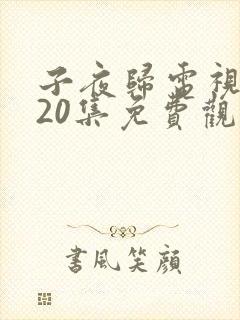 子夜歸電視
20集免費觀
書風笑顔